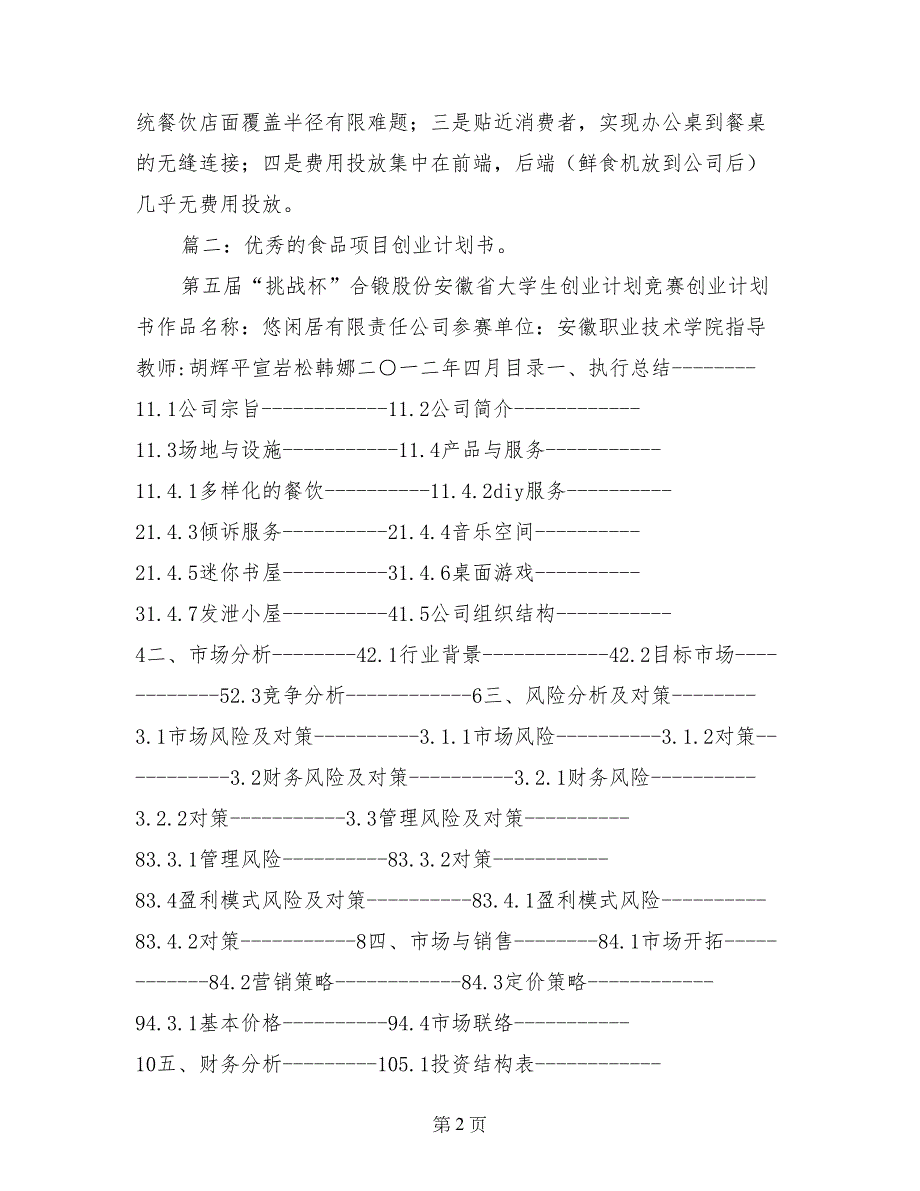 统餐饮店面覆盖半径有限难题；三是贴近消费者，实现办公桌到餐桌
的无缝连接；四是费用投放集中在前端，后端（鲜食机放到公司后）
几乎无费用投放。
篇二：优秀的食品项目创业计划书。
第五届“挑战杯”合锻股份安徽省大学生创业计划竞赛创业计划
书作品名称：悠闲居有限责任公司参赛单位：安徽职业技术学院指导
教师:胡辉平宣岩松韩娜二〇一二年四月目录一、执行总结--------
11.1公司宗旨------------11.2公司简介------------
11.3场地与设施-----------11.4产品与服务-----------
11.4.1多样化的餐饮----------11.4.2diy服务----------
21.4.3倾诉服务----------21.4.4音乐空间----------
21.4.5迷你书屋----------31.4.6桌面游戏----------
31.4.7发泄小屋----------41.5公司组织结构-----------
4二、市场分析--------42.1行业背景------------42.2目标市场----
--------52.3竞争分析------------6三、风险分析及对策--------
3.1市场风险及对策----------3.1.1市场风险----------3.1.2对策--
---------3.2财务风险及对策----------3.2.1财务风险----------
3.2.2对策-----------3.3管理风险及对策----------
83.3.1管理风险----------83.3.2对策-----------
83.4盈利模式风险及对策----------83.4.1盈利模式风险----------
83.4.2对策-----------8四、市场与销售--------84.1市场开拓-----
-------84.2营销策略------------84.3定价策略------------
94.3.1基本价格----------94.4市场联络-----------
10五、财务分析---------105.1投资结构表------------
第 2 页